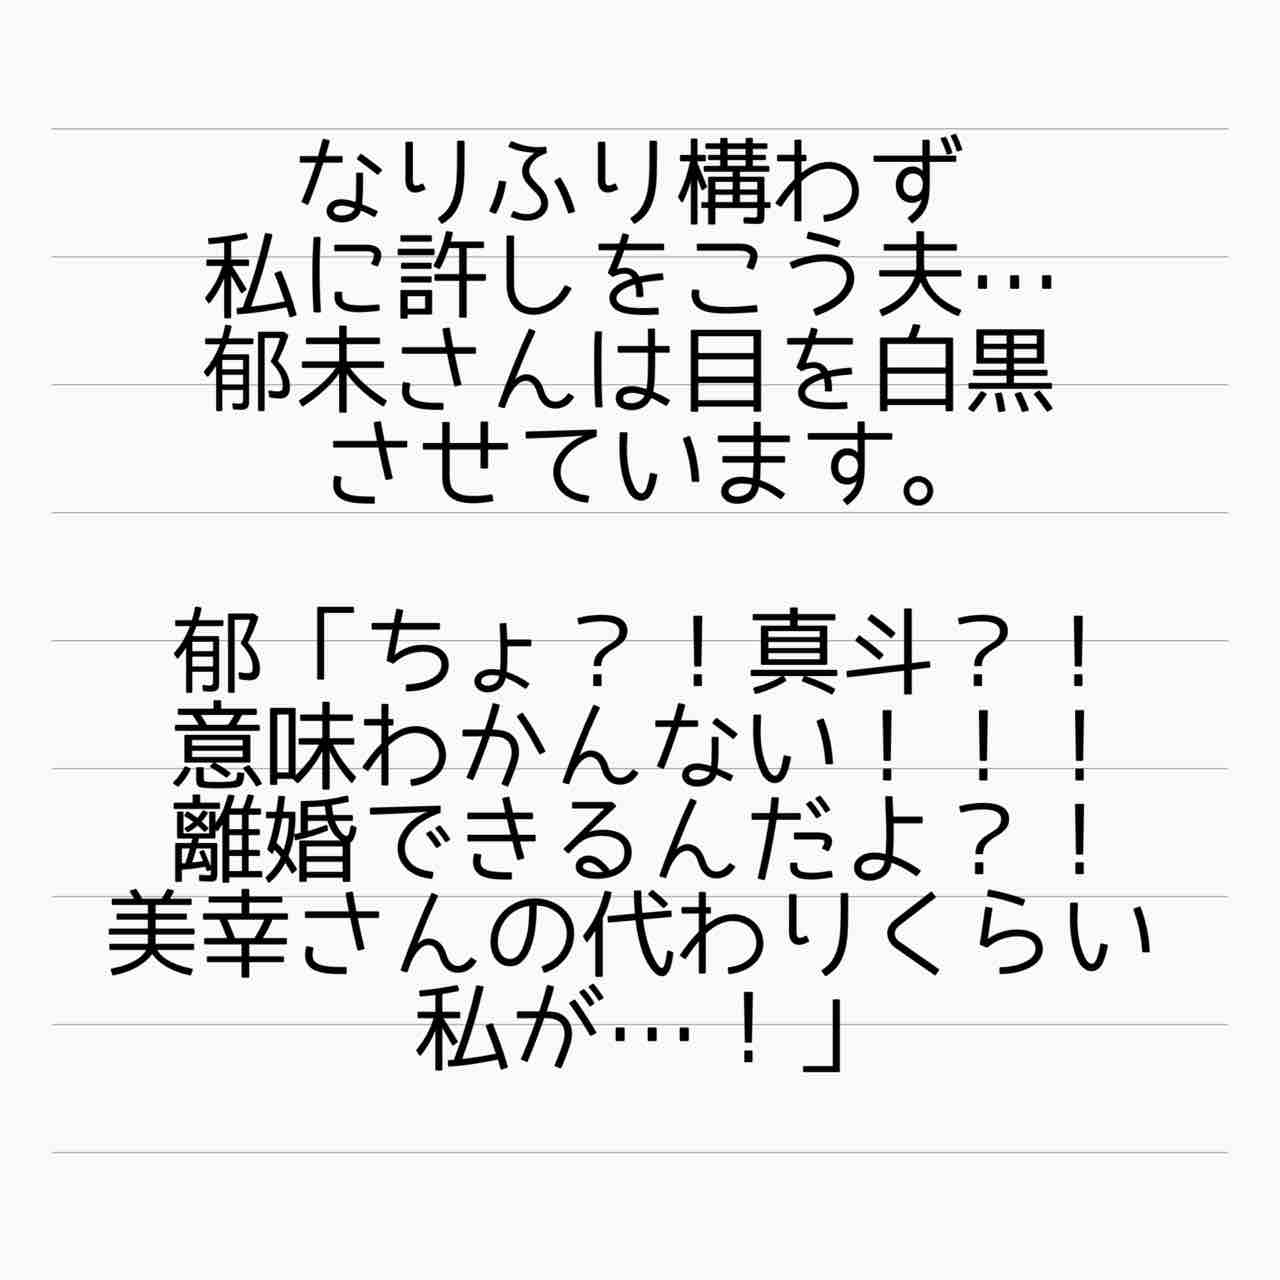 なりふり構わず
私に許しをこう夫…
郁未さんは目を白黒
させています。
郁「ちょ？！真斗？！
意味わかんない！！！
離婚できるんだよ？！
美幸さんの代わりくらい
私が…！」